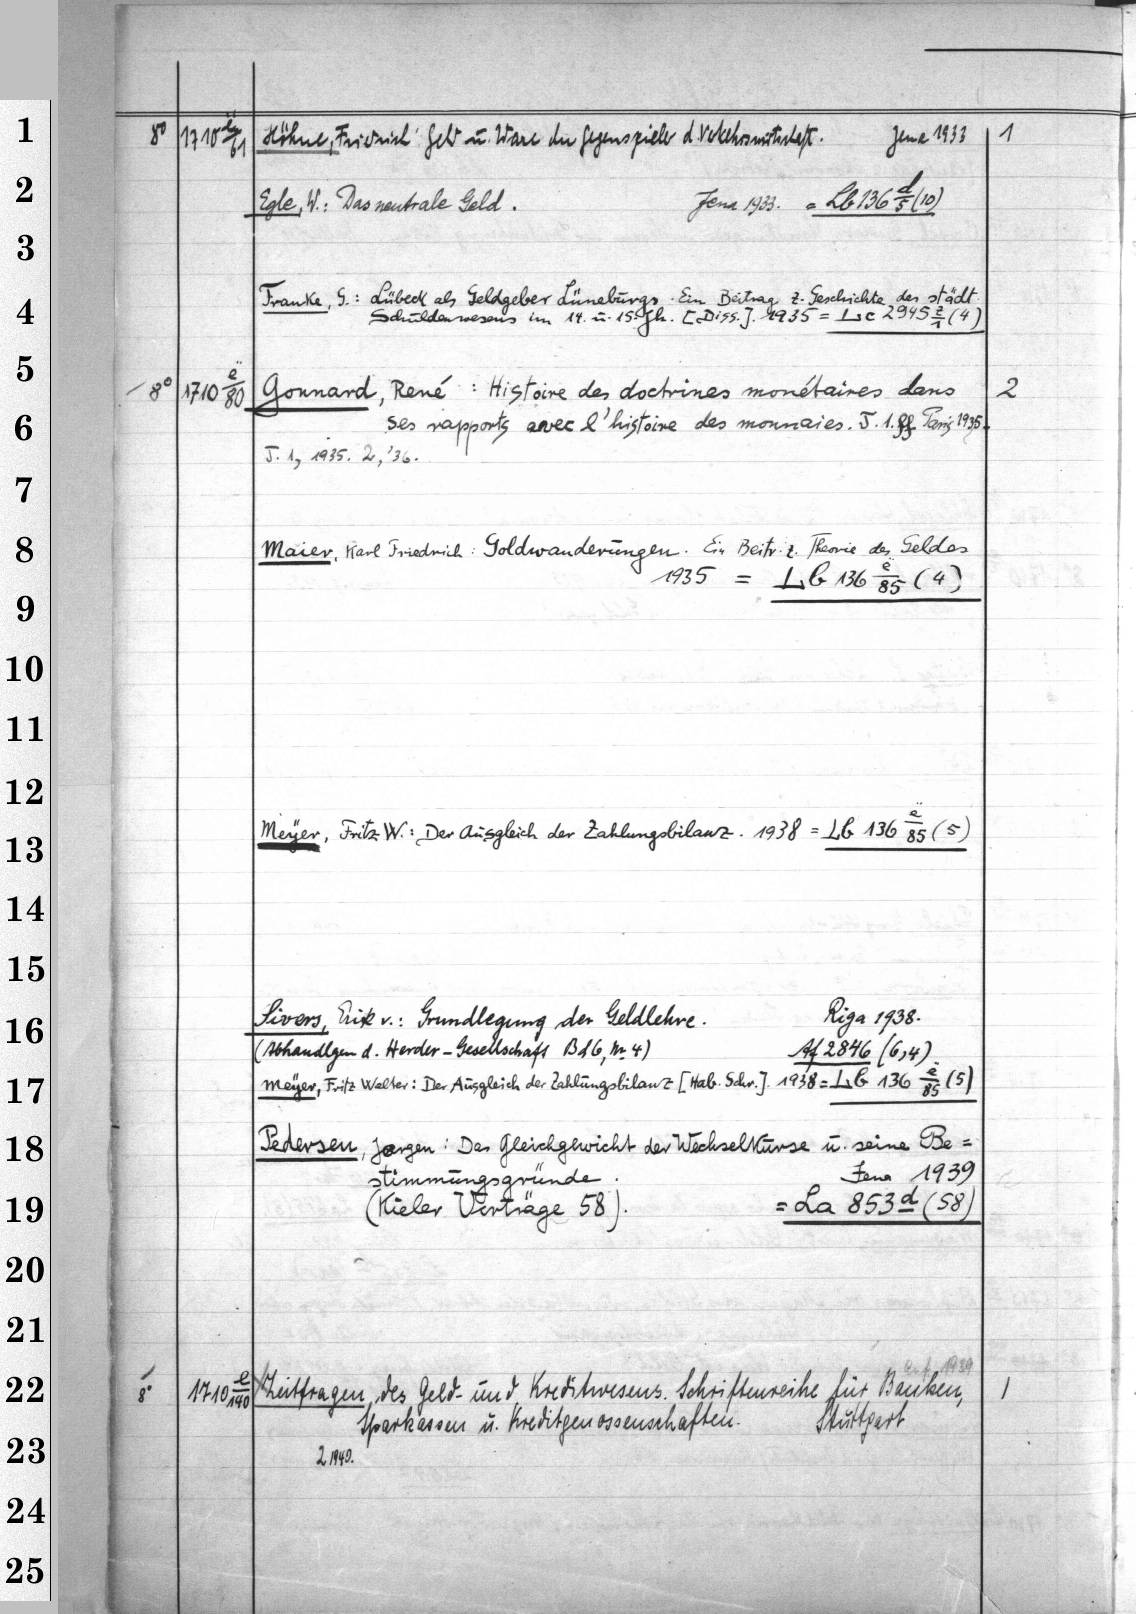 1 8° 1710 ë/61 Höhne, Friedrich: Geld u. Ware die Gegenspieler d. Verkehrswirtschaft. Jena 1933 1
2 Egle, W.: Das neutrale Geld. Jena 1933. = Lb 136 d/5 (10)
3
Franke, G.: Lübeck als Geldgeber Lüneburgs. Ein Beitrag z. Geschichte des städt.
4 Schuldenwesens im 14. u. 15. Jh. [Diss.]. 1935 = Lc 2945 z/1 (4)
5 8° 1710 ë/80 Gonnard, René : Histoire des doctrines monétaires dans 2
6 ses rapports avec l'histoire des monnaies. T. 1. ff. Paris 1935.
T. 1, 1935. 2, '36.
7
8 Maier, Karl Friedrich: Goldwanderungen. Ein Beitr. z. Theorie des Geldes
1935 = Lb 136 ë/85 (4)
9
10
11
12
13 Meyer, Fritz W.: Der Ausgleich der Zahlungsbilanz. 1938 = Lb 136 ë/85 (5)
14
15
16 Sivers, Erik v.: Grundlegung der Geldlehre. Riga 1938.
(Abhandlgen d. Herder-Gesellschaft Bd 6, Nr 4) Af 2846 (6,4)
17 Meyer, Fritz Walter: Der Ausgleich der Zahlungsbilanz [Hab. Schr.]. 1938 = Lb 136 ë/85 (5)
18 Pedersen, Jørgen: Das Gleichgewicht der Wechselkurse u. seine Be=
stimmungsgründe. Jena 1939
19 (Kieler Vorträge 58). = La 853 d (58)
20
21
1939
22 8° 1710 e/140 Zeitfragen des Geld- und Kreditwesens. Schriftenreihe für Banken, 1
Sparkassen u. Kreditgenossenschaften. Stuttgart
23 2 1940.
24
25